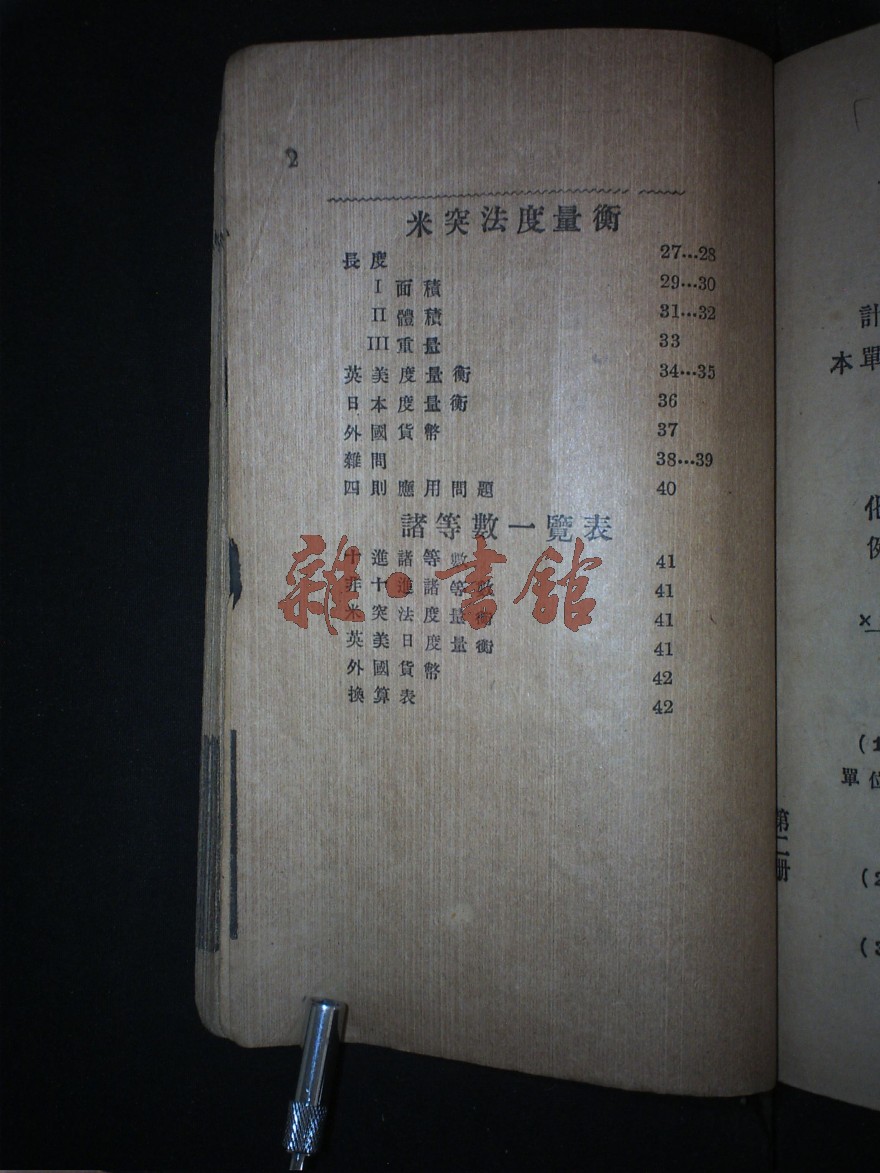 2
米突法度量衡
長度 27...28
I 面積 29...30
II 體積 31...32
III 重量 33
英美度量衡 34...35
日本度量衡 36
外國貨幣 37
雜問 38...39
四則應用問題 40
諸等數一覽表
十進諸等數 41
非十進諸等數 41
米突法度量衡 41
英美日度量衡 41
外國貨幣 42
換算表 42
雜·書館
計
本單
例
×
(1
單位
第二册
(2
(3